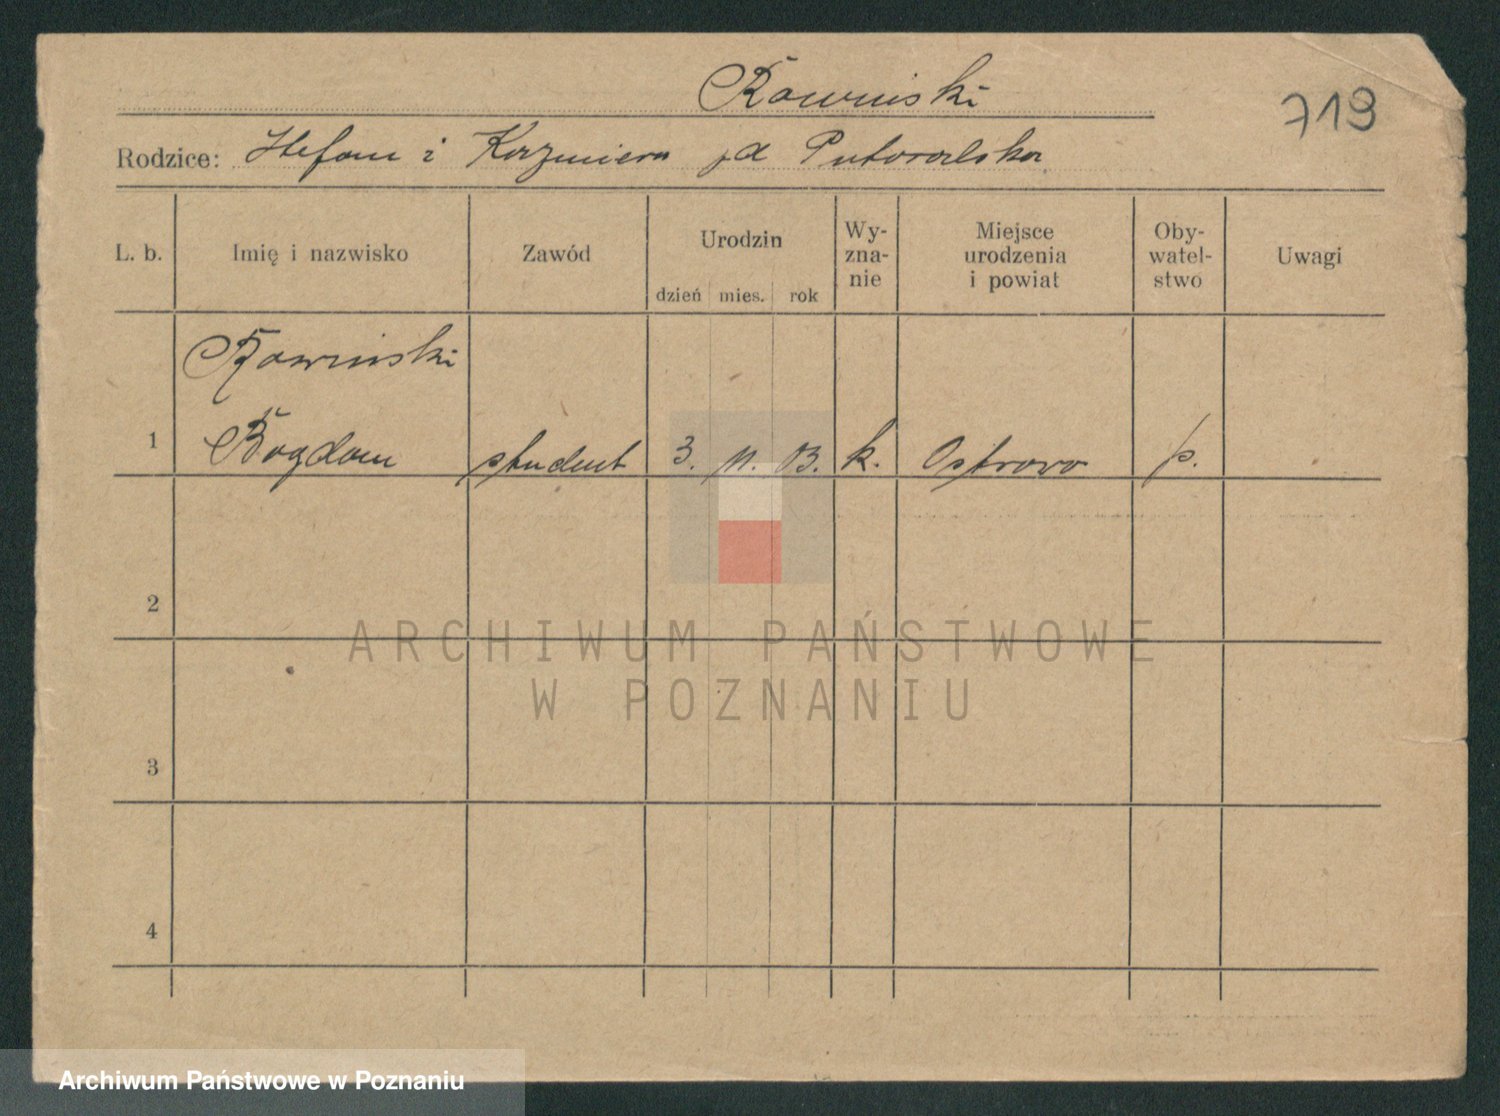 Rawinski
719
Rodzice: Stefan i Kazimiera
L. b. Imię i nazwisko Zawód Urodzin dzień mies. rok Wy-zna-nie Miejsce urodzenia i powiat Oby-watel-stwo Uwagi
Rawinski
1 Bogdan student 3. 11. 03. k. Ostrowo p.
2
ARCHIWUM PAŃSTWOWE
W POZNANIU
3
4
Archiwum Państwowe w Poznaniu